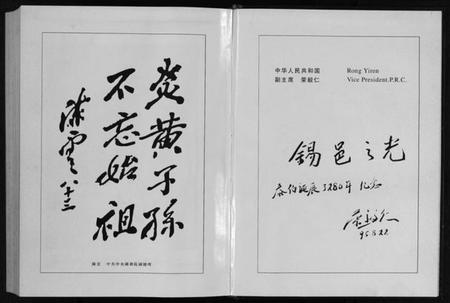 炎黄子孫
不忘始祖
八十三
中华人民共和国
副主席 荣毅仁
Rong Yiren
Vice President.P.R.C.
錫邑之光
泰伯诞辰3280年 纪念
荣毅仁